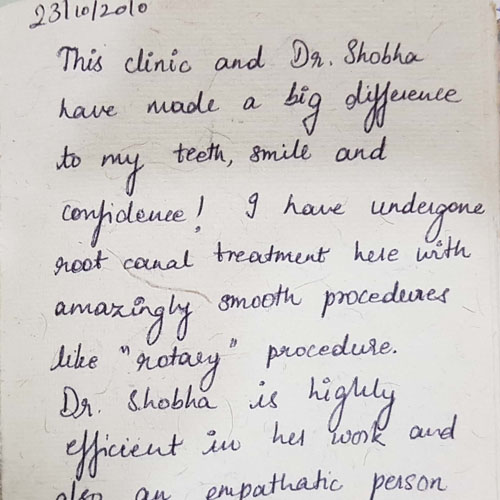 23/10/2010
This clinic and Dr. Shobha
have made a big difference
to my teeth, smile and
confidence! I have undergone
root canal treatment here with
amazingly smooth procedures
like "rotary" procedure.
Dr. Shobha is highly
efficient in her work and
also an empathatic person